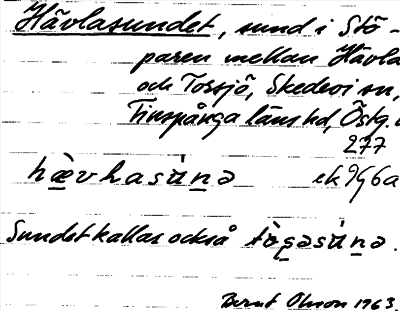 Hävlasundet, sund i Stö-
paren mellan Hävla
och Torsjö, Skedevi sn,
Finspånga läns hd, Östg.
277
hævhasúnə ek 9g6a
Sundet kallas också tògəsúnə.
Bernt Olsson 1963.